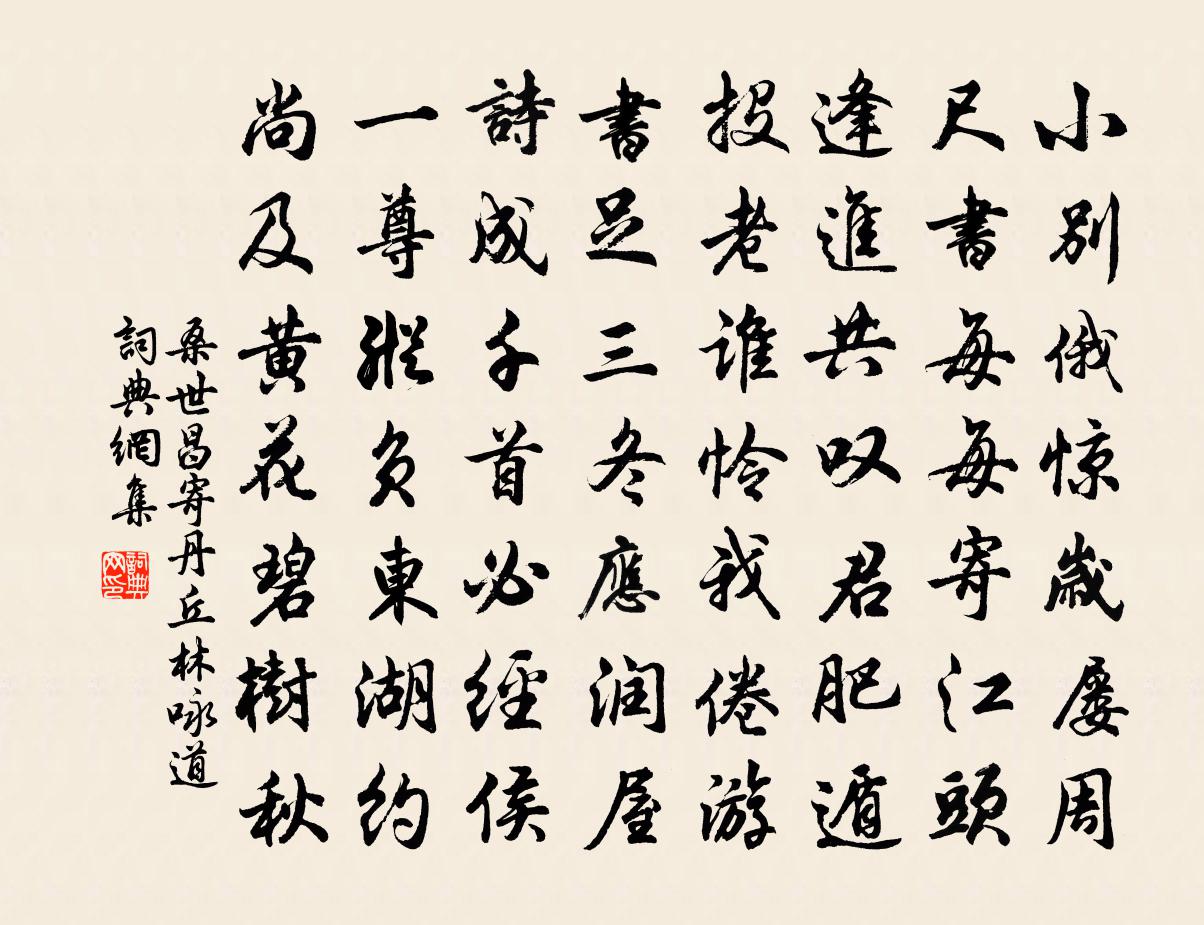 小別俄惊歲屡周
尺書每每寄江頭
逢進共叹君肥遁
投老谁怜我倦游
書足三冬應润屋
詩成千首必經侯
一尊縱負東湖約
尚及黄花碧樹秋
桑世昌寄丹丘林咏道
詞典網集
詞典网印